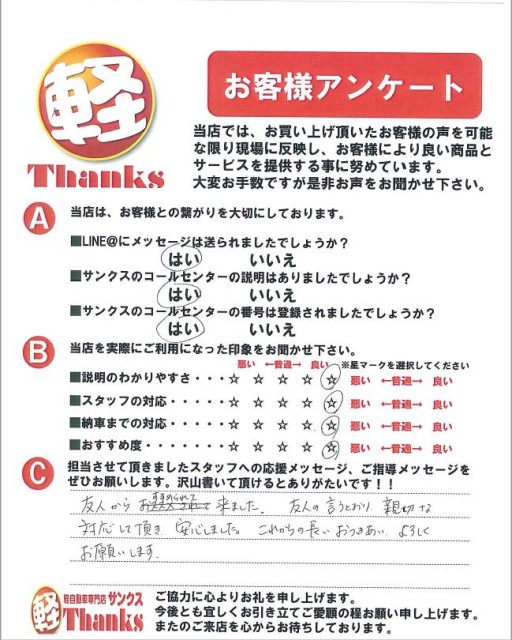 軽
Thanks
お客様アンケート
当店では、お買い上げ頂いたお客様の声を可能
な限り現場に反映し、お客様により良い商品と
サービスを提供する事に努めています。
大変お手数ですが是非お声をお聞かせ下さい。
A 当店は、お客様との繋がりを大切にしております。
■LINE@にメッセージは送られましたでしょうか？
はい いいえ
■サンクスのコールセンターの説明はありましたでしょうか？
はい いいえ
■サンクスのコールセンターの番号は登録されましたでしょうか？
はい いいえ
B 当店を実際にご利用になった印象をお聞かせ下さい。
悪い ←普通→ 良い ※星マークを選択してください
■説明のわかりやすさ・・・☆ ☆ ☆ ☆ ☆ 悪い ←普通→ 良い
■スタッフの対応・・・・・☆ ☆ ☆ ☆ ☆ 悪い ←普通→ 良い
■納車までの対応・・・・・☆ ☆ ☆ ☆ ☆ 悪い ←普通→ 良い
■おすすめ度・・・・・・・☆ ☆ ☆ ☆ ☆ 悪い ←普通→ 良い
C 担当させて頂きましたスタッフへの応援メッセージ、ご指導メッセージを
ぜひお願いします。沢山書いて頂けるとありがたいです！！
すすめられて
友人から 来ました。 友人の言うとおり 親切な
対応して頂き 安心しました。これからの長いおつきあい よろしく
お願いします。
軽 軽自動車専門店 サンクス
Thanks
ご協力に心よりお礼を申し上げます。
今後とも宜しくお引き立てご愛顧の程お願い申し上げます。
またのご来店を心からお待ちしております。